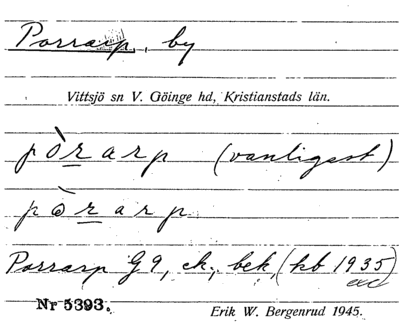 Porrarp, by
Vittsjö sn V. Göinge hd, Kristianstads län.
pòrarp (vanligast)
pòrarp
Porrarp G9, ek, bek (kb 1935)
Nr 5393. Erik W. Bergenrud 1945.